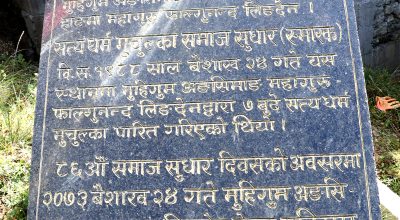 मुहिगुम अङसि
हाङमा महागुरू फाल्गुनन्द लिङदेन ।
सत्यधर्म मुचुल्का समाज सुधार (स्मारक)
वि.सं. १९८८ साल बैशाख २४ गते यस
स्थानमा मुहिगुम अङसिमाङ महागुरू
फाल्गुनन्द लिङदेनद्वारा ७ बुदे सत्यधर्म
मुचुल्का पारित गरिएको थियो ।
८६औं समाज सुधार दिवसको अवसरमा
२०७३ बैशाख २४ गते मुहिगुम अङसि-